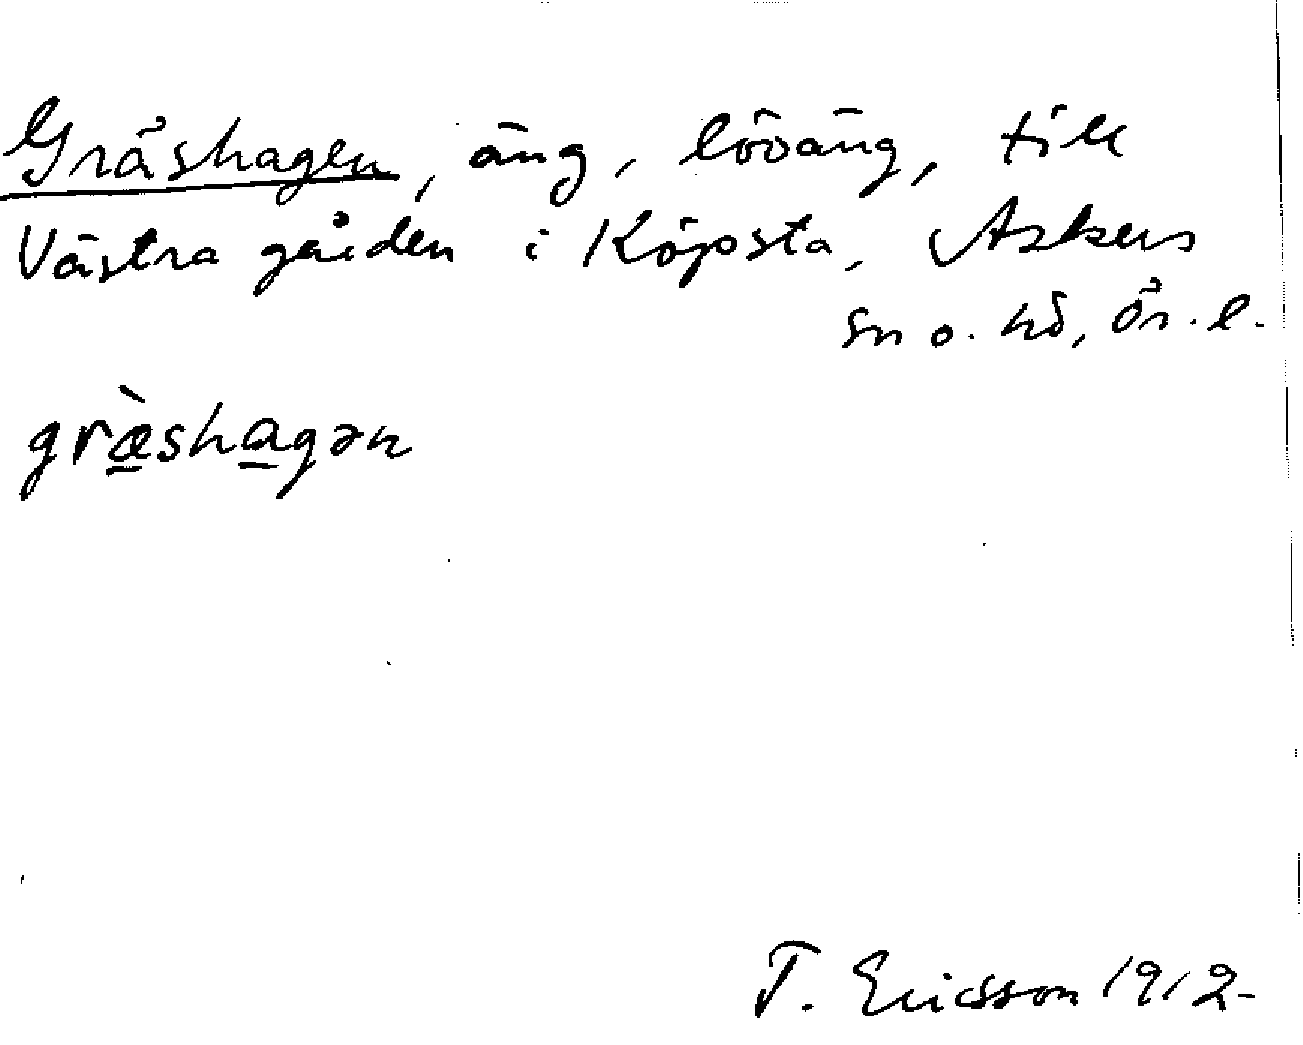 Gräshagen, äng, löväng, till
Västra gården i Köpsta, Askers
sn o. hd, Ör. l.
græ̀shagən
T. Ericsson 1912